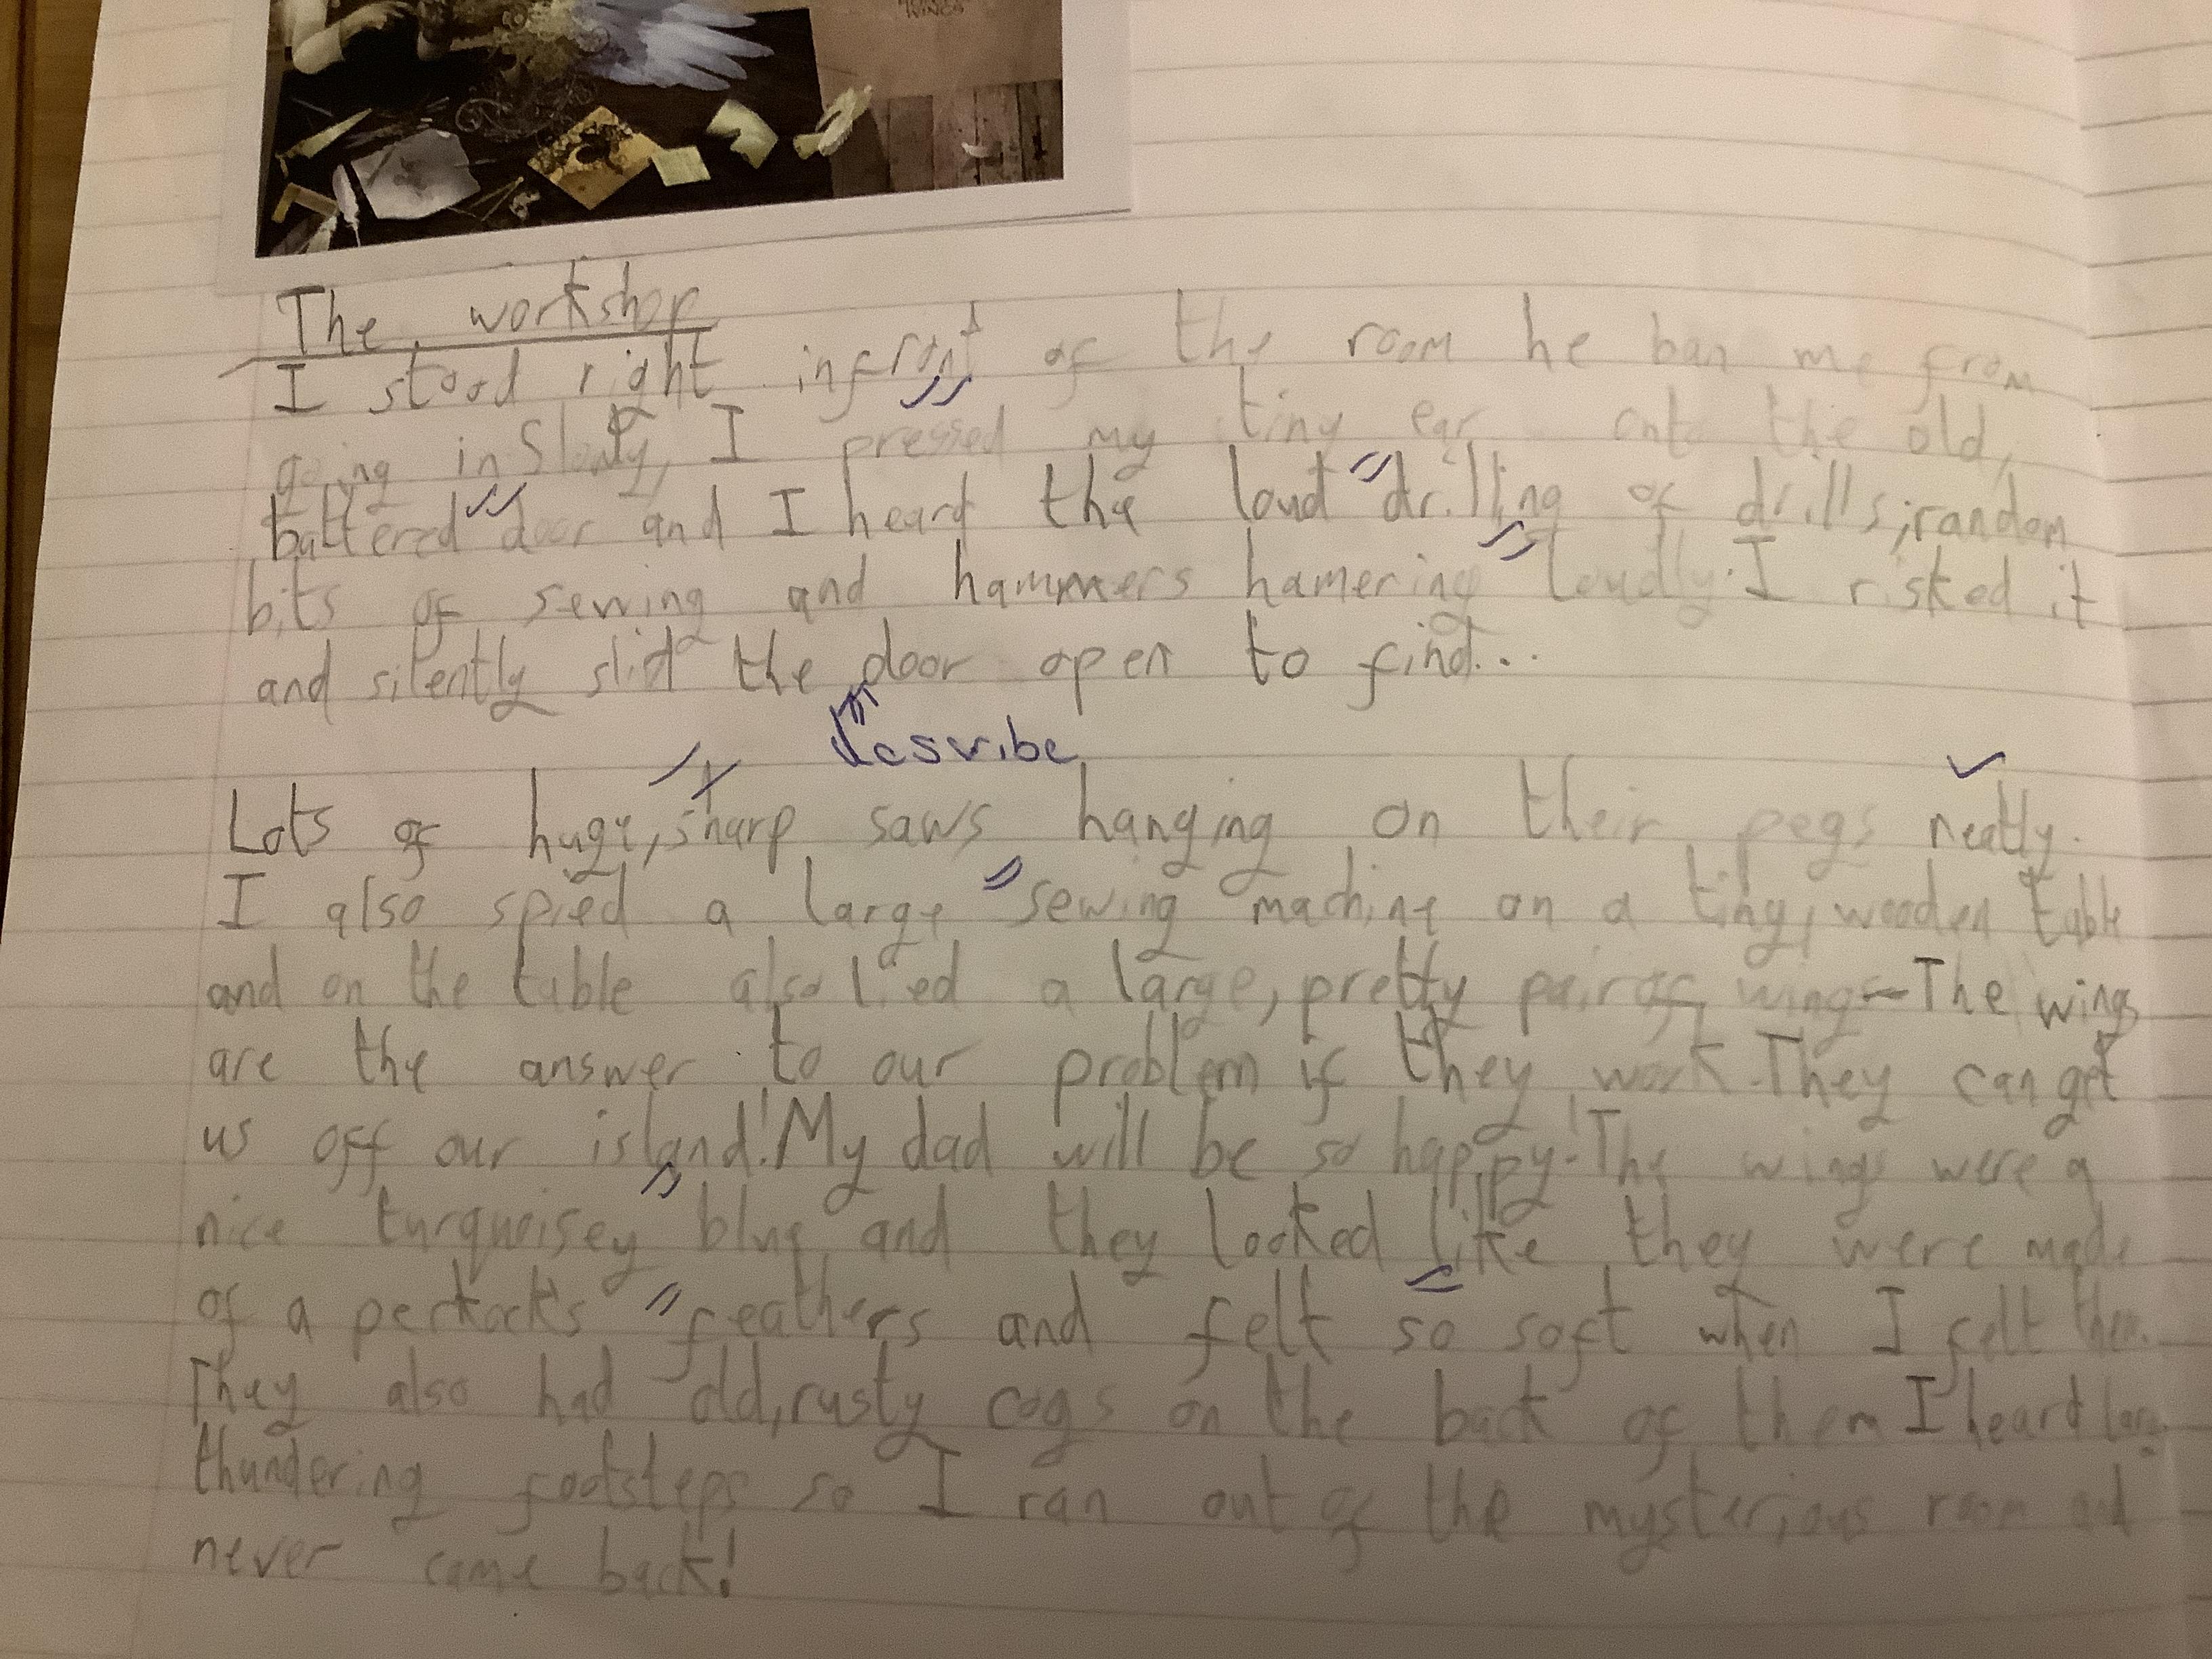 WINGS
The workshop
I stood right infront of the room he ban me from
going in. Slowly, I pressed my tiny ear onto the old,
battered door and I heard the loud drilling of drills, random
bits of sewing and hammers hamering loudly. I risked it
and silently slid the door open to find...
describe
Lots of huge, sharp saws hanging on their pegs neatly.
I also spied a large sewing machine on a tiny, wooden table
and on the table also lied a large, pretty pair of wings - The wings
are the answer to our problem if they work. They can get
us off our island! My dad will be so happy! The wings were a
nice turquoisey blue and they looked like they were made
of a perkock's feathers and felt so soft when I felt them.
They also had old, rusty cogs on the back of them I heard
thundering footsteps so I ran out of the mysterious room and
never came back!